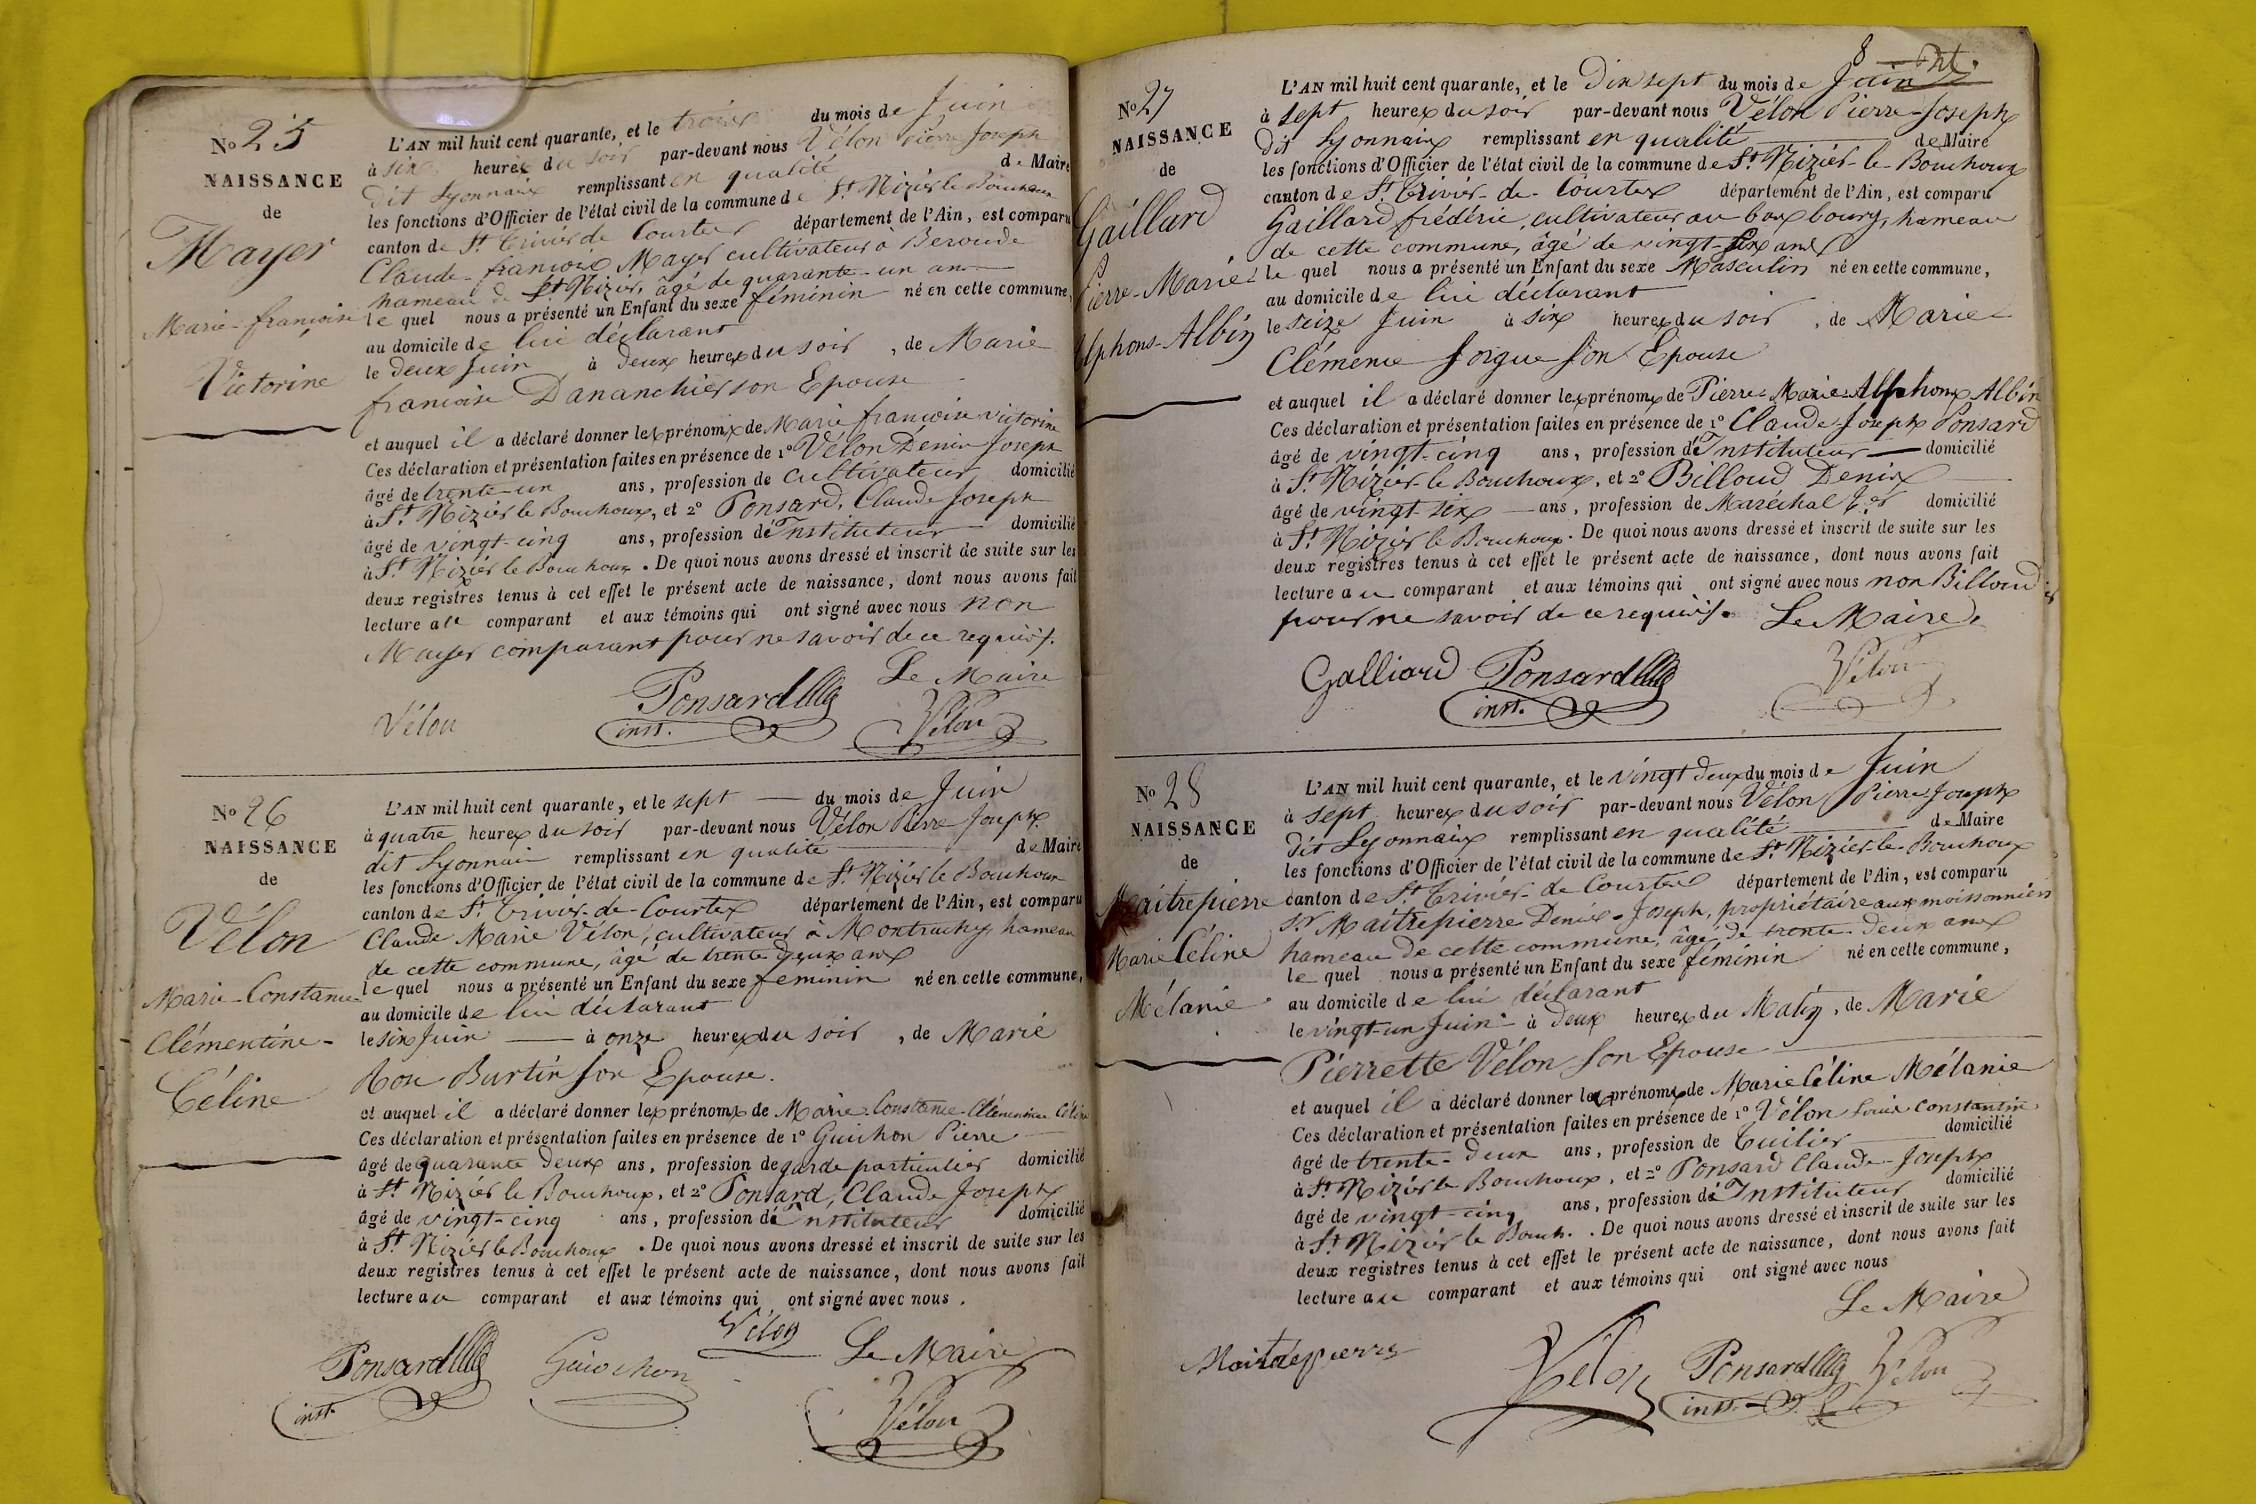 No 25
NAISSANCE
de
Mayer
Marie-françoise
Victorine
L'AN mil huit cent quarante, et le trois du mois de Juin
à six heures du soir par-devant nous Vélon Pierre Joseph
dit Lyonnais remplissant en qualité de Maire
les fonctions d'Officier de l'état civil de la commune de St Nizier le Bouchoux
canton de St Trivier de Courtes département de l'Ain, est comparu
Claude-françois Mayer cultivateur à Beroude
hameau de St Nizier, âgé de quarante-un ans
le quel nous a présenté un Enfant du sexe féminin né en cette commune,
au domicile de lui déclarant
le deux Juin à deux heures du soir, de Marie
françoise Dananchier son Epouse
et auquel il a déclaré donner les prénoms de Marie françoise victorine
Ces déclaration et présentation faites en présence de 1o Vélon Denis Joseph
âgé de trente-un ans, profession de cultivateur domicilié
à St Nizier le Bouchoux, et 2o Ponsard, Claude Joseph
âgé de vingt-cinq ans, profession d'Instituteur domicilié
à St Nizier le Bouchoux. De quoi nous avons dressé et inscrit de suite sur les
deux registres tenus à cet effet le présent acte de naissance, dont nous avons fait
lecture au comparant et aux témoins qui ont signé avec nous non
Mayer comparant pour ne savoir de ce requis.
Le Maire
Vélon Ponsard Vélon
inst.
No 26
NAISSANCE
de
Vélon
Marie-Constance
Clémentine-
Céline
L'AN mil huit cent quarante, et le sept du mois de Juin
à quatre heures du soir par-devant nous Vélon Pierre Joseph
dit Lyonnais remplissant en qualité de Maire
les fonctions d'Officier de l'état civil de la commune de St Nizier le Bouchoux
canton de St Trivier-de-Courtes département de l'Ain, est comparu
Claude Marie Vélon, cultivateur à Montrachy, hameau
de cette commune, âgé de trente deux ans
le quel nous a présenté un Enfant du sexe feminin né en cette commune,
au domicile de lui déclarant
le six Juin à onze heures du soir, de Marie
Rose Burtin son Epouse.
et auquel il a déclaré donner les prénoms de Marie-Constance-Clémentine Céline
Ces déclaration et présentation faites en présence de 1o Guichon Pierre
âgé de quarante deux ans, profession de garde particulier domicilié
à St Nizier le Bouchoux, et 2o Ponsard, Claude Joseph
âgé de vingt-cinq ans, profession d'Instituteur domicilié
à St Nizier le Bouchoux. De quoi nous avons dressé et inscrit de suite sur les
deux registres tenus à cet effet le présent acte de naissance, dont nous avons fait
lecture au comparant et aux témoins qui ont signé avec nous.
Vélon Le Maire
Ponsard Guichon Vélon
inst.
8
No 27
NAISSANCE
de
Gaillard
Pierre-Marie-
Alphons-Albin
L'AN mil huit cent quarante, et le Dix sept du mois de Juin
à sept heures du soir par-devant nous Vélon Pierre-Joseph
dit Lyonnaix remplissant en qualité de Maire
les fonctions d'Officier de l'état civil de la commune de St Nizier-le-Bouchoux
canton de St Trivier-de-Courtes département de l'Ain, est comparu
Gaillard frédéric, cultivateur au bas bourg, hameau
de cette commune, âgé de vingt-six ans
le quel nous a présenté un Enfant du sexe Masculin né en cette commune,
au domicile de lui déclarant
le seize Juin à six heures du soir, de Marie-
Clémence Sorgue son Epouse
et auquel il a déclaré donner les prénoms de Pierre-Marie-Alphons Albin
Ces déclaration et présentation faites en présence de 1o Claude Joseph Ponsard
âgé de vingt-cinq ans, profession d'Instituteur domicilié
à St Nizier-le-Bouchoux, et 2o Billoud Denis
âgé de vingt-six ans, profession de Maréchal f.er domicilié
à St Nizier le Bouchoux. De quoi nous avons dressé et inscrit de suite sur les
deux registres tenus à cet effet le présent acte de naissance, dont nous avons fait
lecture au comparant et aux témoins qui ont signé avec nous non Billoud
pour ne savoir de ce requis. Le Maire
Galliard Ponsard Vélon
inst.
No 28
NAISSANCE
de
Maitrepierre
Marie Céline
Mélanie
L'AN mil huit cent quarante, et le vingt deux du mois de Juin
à sept heures du soir par-devant nous Vélon Pierre Joseph
dit Lyonnaix remplissant en qualité de Maire
les fonctions d'Officier de l'état civil de la commune de St Nizier-le-Bouchoux
canton de St Trivier-de Courtes département de l'Ain, est comparu
Sr Maitrepierre Denis-Joseph, propriétaire aux moissonniers
hameau de cette commune, âgé de trente-deux ans
le quel nous a présenté un Enfant du sexe féminin né en cette commune,
au domicile de lui déclarant
le vingt-un Juin à deux heures du Matin, de Marie
Pierrette Vélon son Epouse
et auquel il a déclaré donner les prénoms de Marie Céline Mélanie
Ces déclaration et présentation faites en présence de 1o Vélon Louis Constantin
âgé de trente-deux ans, profession de Tuilier domicilié
à St Nizier le Bouchoux, et 2o Ponsard Claude-Joseph
âgé de vingt-cinq ans, profession d'Instituteur domicilié
à St Nizier le Bouch. . De quoi nous avons dressé et inscrit de suite sur les
deux registres tenus à cet effet le présent acte de naissance, dont nous avons fait
lecture au comparant et aux témoins qui ont signé avec nous
Le Maire
Maitrepierre Vélon Ponsard Vélon
inst.